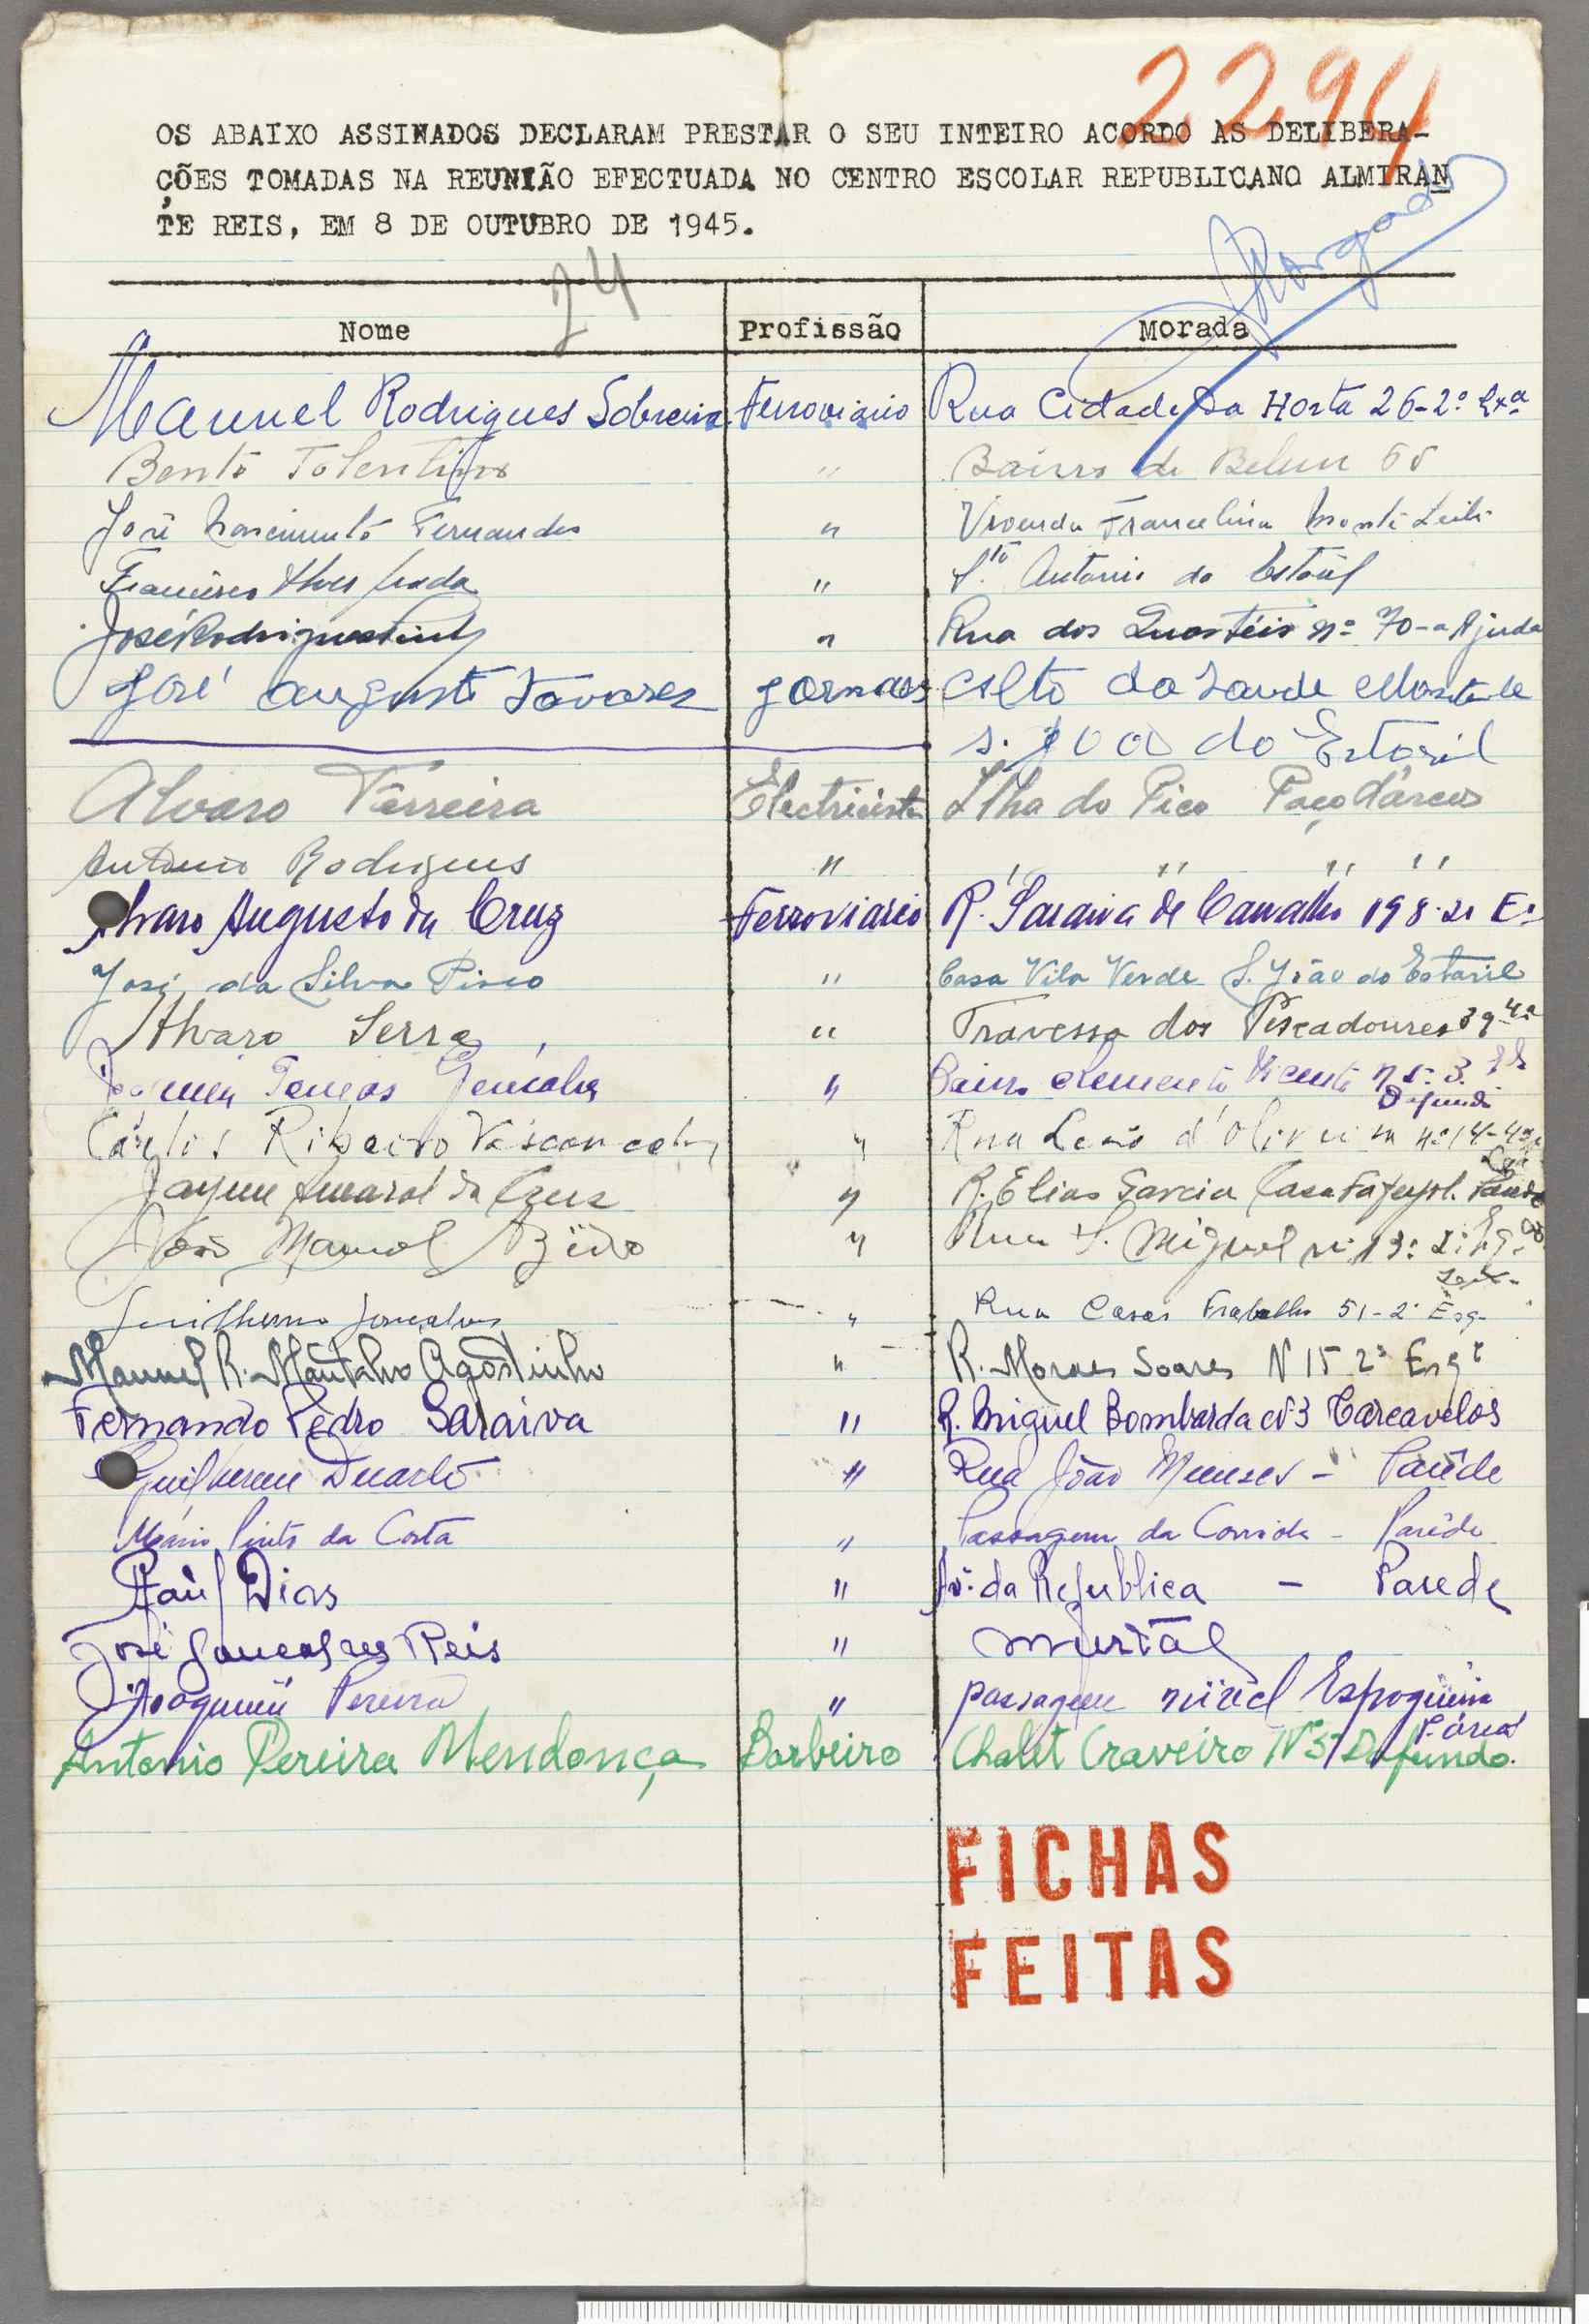 2294
OS ABAIXO ASSINADOS DECLARAM PRESTAR O SEU INTEIRO ACORDO AS DELIBERA-
ÇÕES TOMADAS NA REUNIÃO EFECTUADA NO CENTRO ESCOLAR REPUBLICANO ALMIRAN
TE REIS, EM 8 DE OUTUBRO DE 1945.
24
Nome Profissão Morada
Manuel Rodrigues Sobreira Ferroviario Rua Cidade da Horta 26-2º Lxª
Bento Tolentino " Bairro de Belem
José Nascimento Fernandes " Vivenda Francelina Monte Leite
Francisco Alves " Sto Antonio do Estoril
José Rodrigues " Rua dos Quarteis nº 70-a Ajuda
José Augusto Tavares Alto da
S. João do Estoril
Alvaro Ferreira Electricista Ilha do Pico Paço d'árcos
Antonio Rodrigues " " " " "
Alvaro Augusto da Cruz Ferroviario R. Saraiva de Carvalho 198
José da Silva " Casa Vila Verde S. João do Estoril
Alvaro Serra " Travessa dos Pescadoures
Gonçalves " Bairro Clemente Vicente
Dafundo
Carlos Ribeiro Vasconcelos " Rua d'Oliveira
Jayme Amaral da Cruz " R. Elias Garcia Casa
João Manuel " Rua S. Miguel
Guilherme Gonçalves " Rua Casas Trabalho 51-2º Esq.
Manuel R. Agostinho " R. Moraes Soares N 15 2º Esqº
Fernando Pedro Saraiva " R. Miguel Bombarda Nº 3 Carcavelos
Guilherme Duarte " Rua João Menses - Paréde
Mário Pinto da Costa " Passagem da - Paréde
Raúl Dias " Av. da Republica - Parede
José Gonçalves Reis " Murtal
Joaquim Pereira " passagem nivel
Antonio Pereira Mendonça Barbeiro Chalet Craveiro Nº 5 Dafundo.
FICHAS
FEITAS